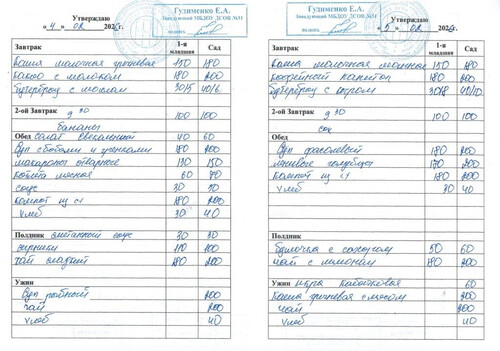 Утверждаю
« 4 » 02 202 г.
Гудименко Е.А.
Заведующий МБДОУ ДСОВ №31
Завтрак 1-я младшая Сад
каша молочная гречневая 150 180
какао с молоком 180 200
бутерброд с маслом 30/5 40/6
2-ой Завтрак 100 100
бананы
Обед салат свекольный 40 60
Суп с бобами и гренками 180 200
макароны отварные 130 150
котлета мясная 60 70
соус 30 30
компот из с/ф 180 200
хлеб 30 40
Полдник сметанный соус 30 30
сырники 110 100
чай сладкий 180 200
Ужин
Суп рыбный 200
чай 200
хлеб 40
Гудименко Е.А.
Заведующий МБДОУ ДСОВ №31
Утверждаю
« 5 » 02 202 г.
Завтрак 1-я младшая Сад
каша молочная 150 180
кофейный напиток 180 200
бутерброд с сыром 30/8 40/10
2-ой Завтрак 100 100
сок
Обед
Суп фасолевый 180 200
ленивые голубцы 170 200
компот из с/ф 180 200
хлеб 30 40
Полдник
булочка с сахаром 50 60
чай с лимоном 180 200
Ужин икра кабачковая 60
Каша гречневая с мясом 200
чай 200
хлеб 40